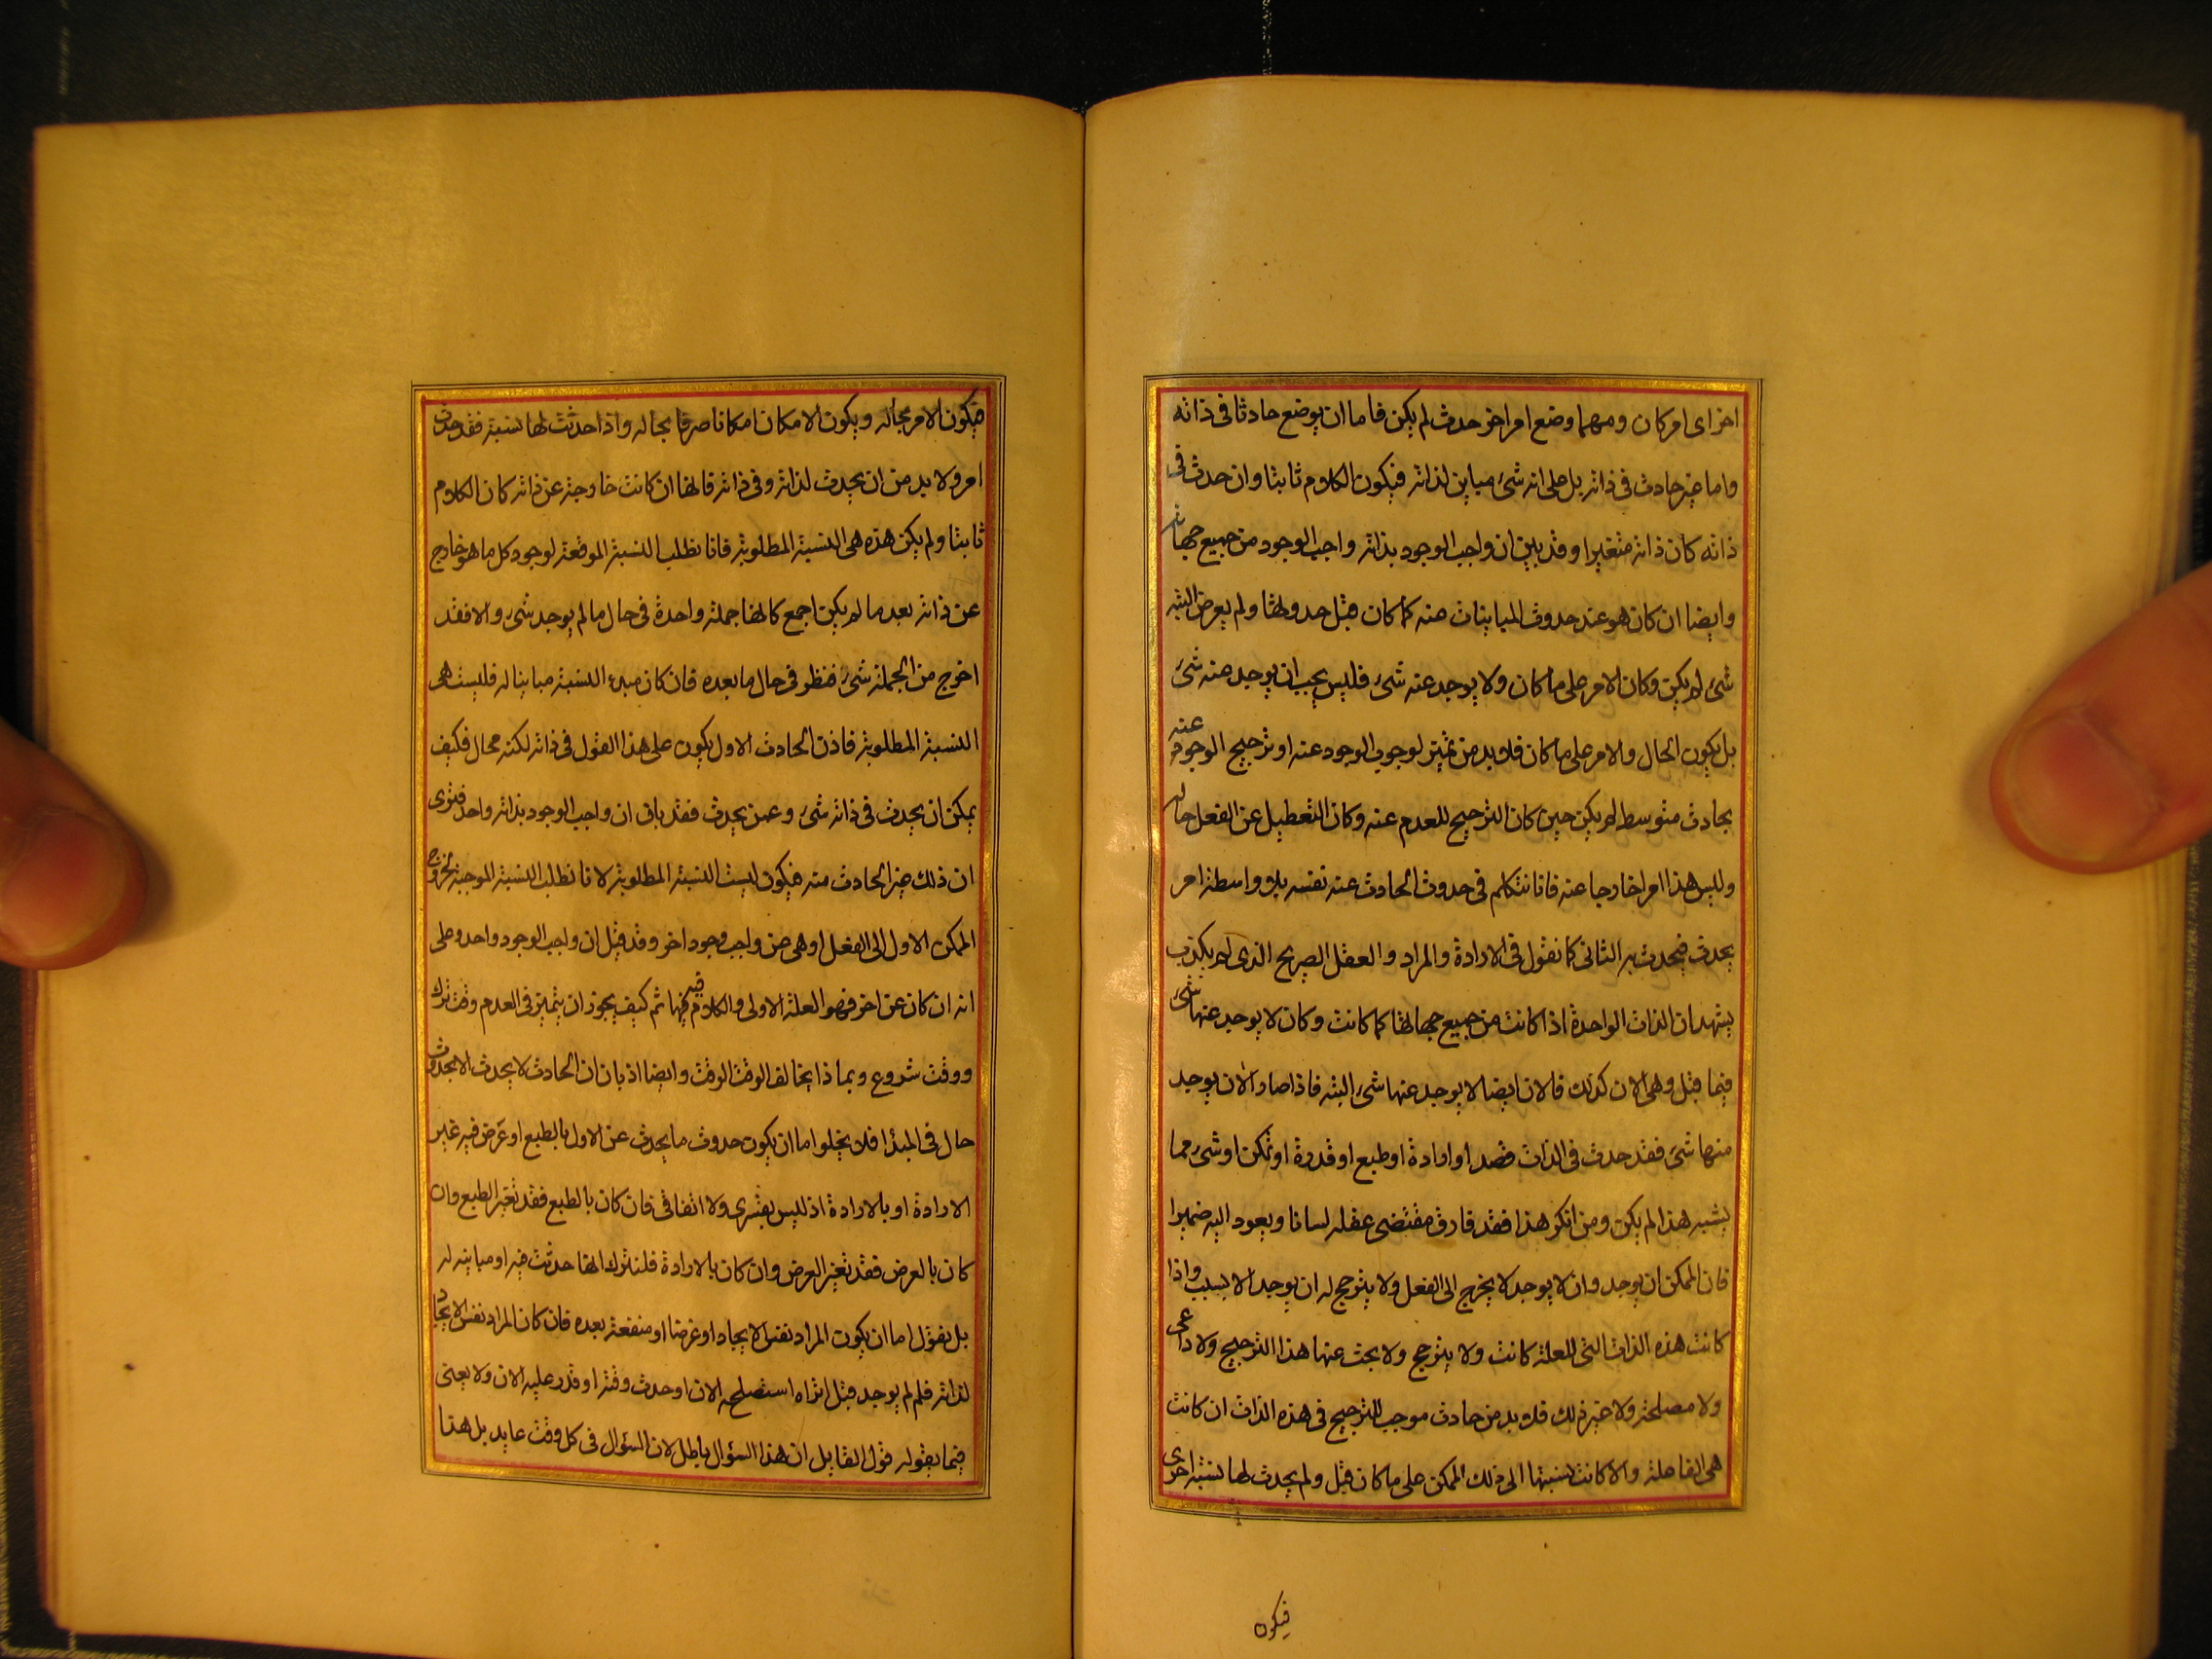 اخر اى امر كان ومهما وضع امر اخر حدث لم يكن فاما ان يوضع حادثا فى ذاته
واما غير حادث فى ذاته بل على انه شئ مباين لذاته فيكون الكلام ثابتا وان حدث فى
ذاته كان ذاته متغيرا وقد بين ان واجب الوجود بذاته واجب الوجود من جميع جهاته
وايضا ان كان هو عند حدوث المباينات عنه كما كان قبل حدوثها ولم يعرض البته
شئ لم يكن وكان الامر على ما كان ولا يوجد عنه شئ فليس يجب ان يوجد منه شئ
بل يكون الحال والامر على ما كان فلا بد من تميز لوجوب الوجود عنه او ترجيح الوجود عنه
بحادث متوسط لم يكن حين كان الترجيح للعدم عنه وكان التعطيل عن الفعل حاله
وليس هذا امرا خارجا عنه فانا نتكلم فى حدوث الحادث عنه نفسه بلا واسطة امر
يحدث فيحدث به الثانى كما نقول فى الارادة والمراد والعقل الصريح الذى لم يكذب
يشهد ان الذات الواحدة اذا كانت من جميع جهاتها كما كانت وكان لا يوجد عنها شئ
فيما قبل وهى الان كذلك فالان ايضا لا يوجد عنها شئ البته فاذا صار الان يوجد
منها شئ فقد حدث فى الذات قصد او ارادة او طبع او قدرة او تمكن او شئ مما
يشبه هذا لم يكن ومن انكر هذا فقد فارق مقتضى عقله لسانا ويعود اليه ضميرا
فان الممكن ان يوجد وان لا يوجد لا يخرج الى الفعل ولا يترجح له ان يوجد الا بسبب واذا
كانت هذه الذات التى للعلة كانت ولا يترجح ولا يجب عنها هذا الترجيح ولا داعى
ولا مصلحة ولا غير ذلك فلا بد من حادث موجب للترجيح فى هذه الذات ان كانت
هى الفاعلة والا كانت نسبتها الى ذلك الممكن على ما كان قبل ولم يحدث لها نسبة اخرى
فيكون
فيكون الامر بحاله ويكون الامكان امكانا صرفا بحاله واذا حدثت لها نسبة فقد حدث
امر ولا بد من ان يحدث لذاته وفى ذاته فانها ان كانت خارجة عن ذاته كان الكلام
ثابتا ولم يكن هذه هى النسبة المطلوبة فانا نطلب النسبة الموقعة لوجود كل ما هو خارج
عن ذاته بعد ما لم يكن اجمع كانها جملة واحدة فى حال ما لم يوجد شئ والا فقد
اخرج من الجملة شئ فنظر فى حال ما بعده فان كان مبدء النسبة مباينا له فليست هى
النسبة المطلوبة فاذن الحادث الاول يكون على هذا القول فى ذاته لكنه محال فكيف
يمكن ان يحدث فى ذاته شئ وعمن يحدث فقد بان ان واجب الوجود بذاته واحد فترى
ان ذلك غير الحادث منه فيكون ليست النسبة المطلوبة لانا نطلب النسبة الموجبة لخروج
الممكن الاول الى الفعل او هى من واجب وجود اخر وقد قيل ان واجب الوجود واحد وعلى
انه ان كان عن اخر فهو العلة الاولى والكلام فيه فيها ثم كيف يجوز ان يتميز فى العدم وقت ترك
ووقت شروع وبماذا يخالف الوقت الوقت وايضا اذ بان ان الحادث لا يحدث الا بحدوث
حال فى المبدأ فلا يخلوا اما ان يكون حدوث ما يحدث عن الاول بالطبع او عرض فيه غير
الارادة او بالارادة اذ ليس بقسرى ولا اتفاقى فان كان بالطبع فقد تغير الطبع وان
كان بالعرض فقد تغير العرض وان كان بالارادة فلنترك انها حدثت فيه او مباينه له
بل نقول اما ان يكون المراد نفس الايجاد او غرضا او منفعة بعده فان كان المراد نفس الايجاد
لذاته فلم لم يوجد قبل اتراه استصلحه الان او حدث وقته او قدر عليه الان ولا يعنى
فيما يقوله قول القايل ان هذا السؤال باطل لان السؤال فى كل وقت عايد بل هذا